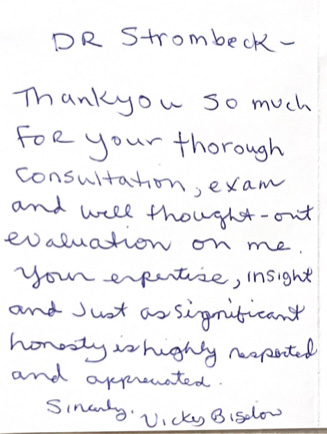 DR Strombeck -
Thankyou so much
For your thorough
Consultation, exam
and well thought-out
evaluation on me.
Your expertise, insight
and just as significant
honesty is highly respected
and appreciated.
Sincerely, Vicky Bigelow